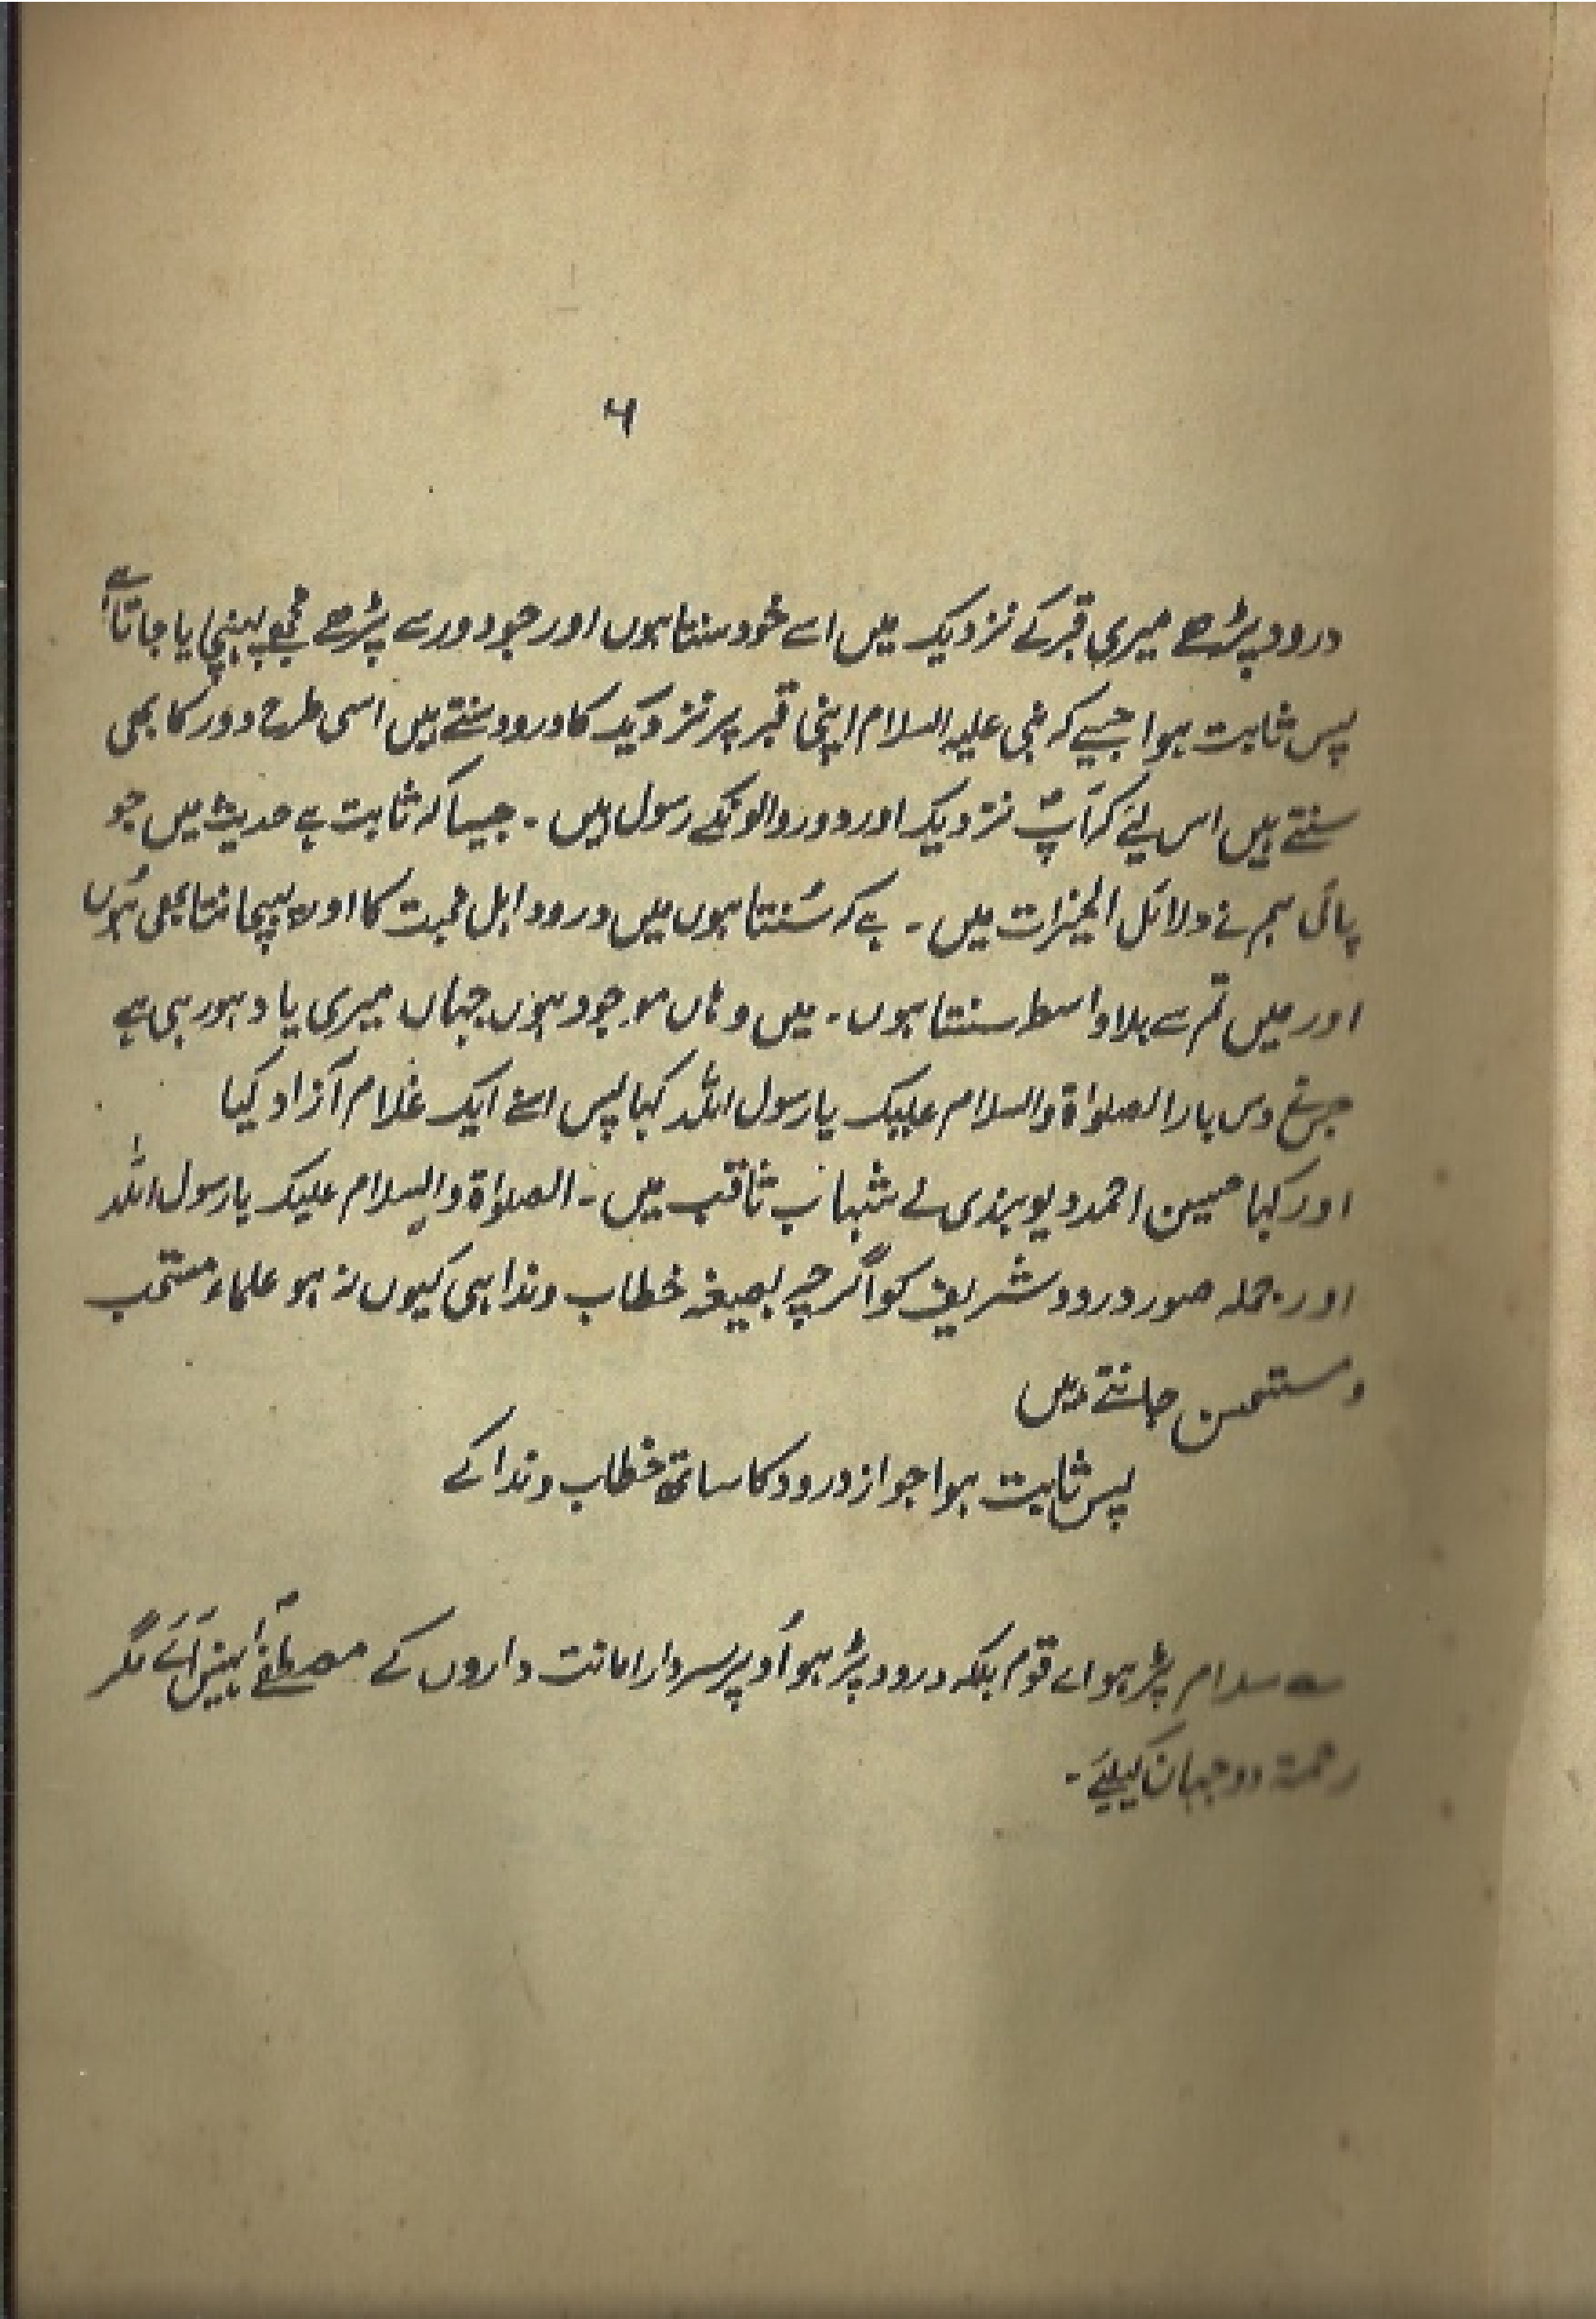 ۶
درود پڑھے میری قبر کے نزدیک میں اسے خود سنتا ہوں اور جو دور سے پڑھے مجھے پہنچایا جاتا ہے
پس ثابت ہوا جیسے کہ نبی علیہ السلام اپنی قبر پر نزدیک کا درود سنتے ہیں اسی طرح دور کا بھی
سنتے ہیں اس لیے کہ آپؐ نزدیک اور دور والونکے رسول ہیں ۔ جیسا کہ ثابت ہے حدیث میں جو
پائی ہم نے دلائل الخیرات میں ۔ ہے کہ سُنتا ہوں میں درود اہل محبت کا اور پہچانتا بھی ہُوں
اور میں تم سے بلا واسطہ سنتا ہوں ۔ میں وہاں موجود ہوں جہاں میری یاد ہو رہی ہے
جس نے دس بار الصلوٰۃ والسلام علیک یا رسول اللہ کہا پس اسنے ایک غلام آزاد کیا
اور کہا حسین احمد دیوبندی نے شہاب ثاقب میں ۔ الصلوٰۃ والسلام علیک یا رسول اللہ
اور جملہ صور درود شریف کو اگرچہ بصیغہ خطاب و ندا ہی کیوں نہ ہو علماء مستحب
و مستحسن جانتے ہیں
پس ثابت ہوا جواز درود کا ساتھ خطاب و ندا کے
سلام پڑہو اے قوم بلکہ درود پڑہو اُوپر سردار امانت داروں کے مصطفےٰؐ نہیں آئے مگر
رحمۃ دو جہان کیلیے ۔